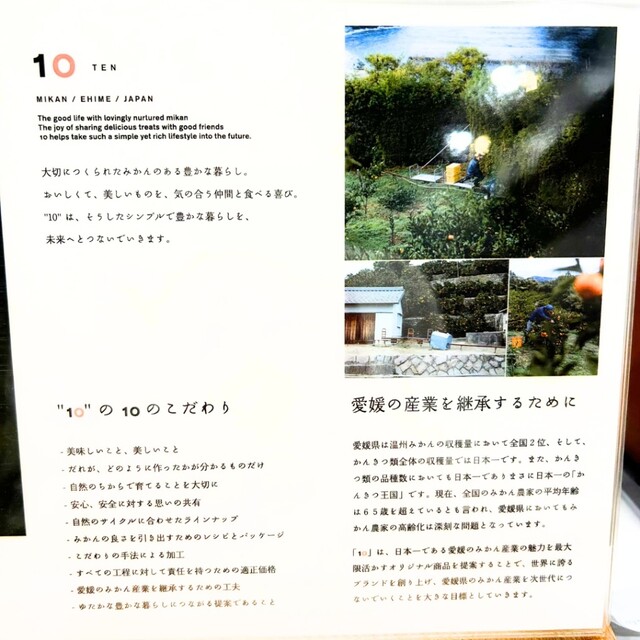 10 TEN
MIKAN / EHIME / JAPAN
The good life with lovingly nurtured mikan
The joy of sharing delicious treats with good friends
10 helps take such a simple yet rich lifestyle into the future.
大切につくられたみかんのある豊かな暮らし。
おいしくて、美しいものを、気の合う仲間と食べる喜び。
"10" は、そうしたシンプルで豊かな暮らしを、
未来へとつないでいきます。
"10" の 10 のこだわり
- 美味しいこと、美しいこと
- だれが、どのように作ったかが分かるものだけ
- 自然のちからで育てることを大切に
- 安心、安全に対する思いの共有
- 自然のサイクルに合わせたラインナップ
- みかんの良さを引き出すためのレシピとパッケージ
- こだわりの手法による加工
- すべての工程に対して責任を持つための適正価格
- 愛媛のみかん産業を継承するための工夫
- ゆたかな豊かな暮らしにつながる提案であること
愛媛の産業を継承するために
愛媛県は温州みかんの収穫量において全国2位、そして、
かんきつ類全体の収穫量では日本一です。また、かんき
つ類の品種数においても日本一でありまさに日本一の「か
んきつ王国」です。現在、全国のみかん農家の平均年齢
は65歳を超えているとも言われ、愛媛県においてもみ
かん農家の高齢化は深刻な問題となっています。
「10」は、日本一である愛媛のみかん産業の魅力を最大
限活かすオリジナル商品を提案することで、世界に誇る
ブランドを創り上げ、愛媛県のみかん産業を次世代につ
ないでいくことを大きな目標としていきます。